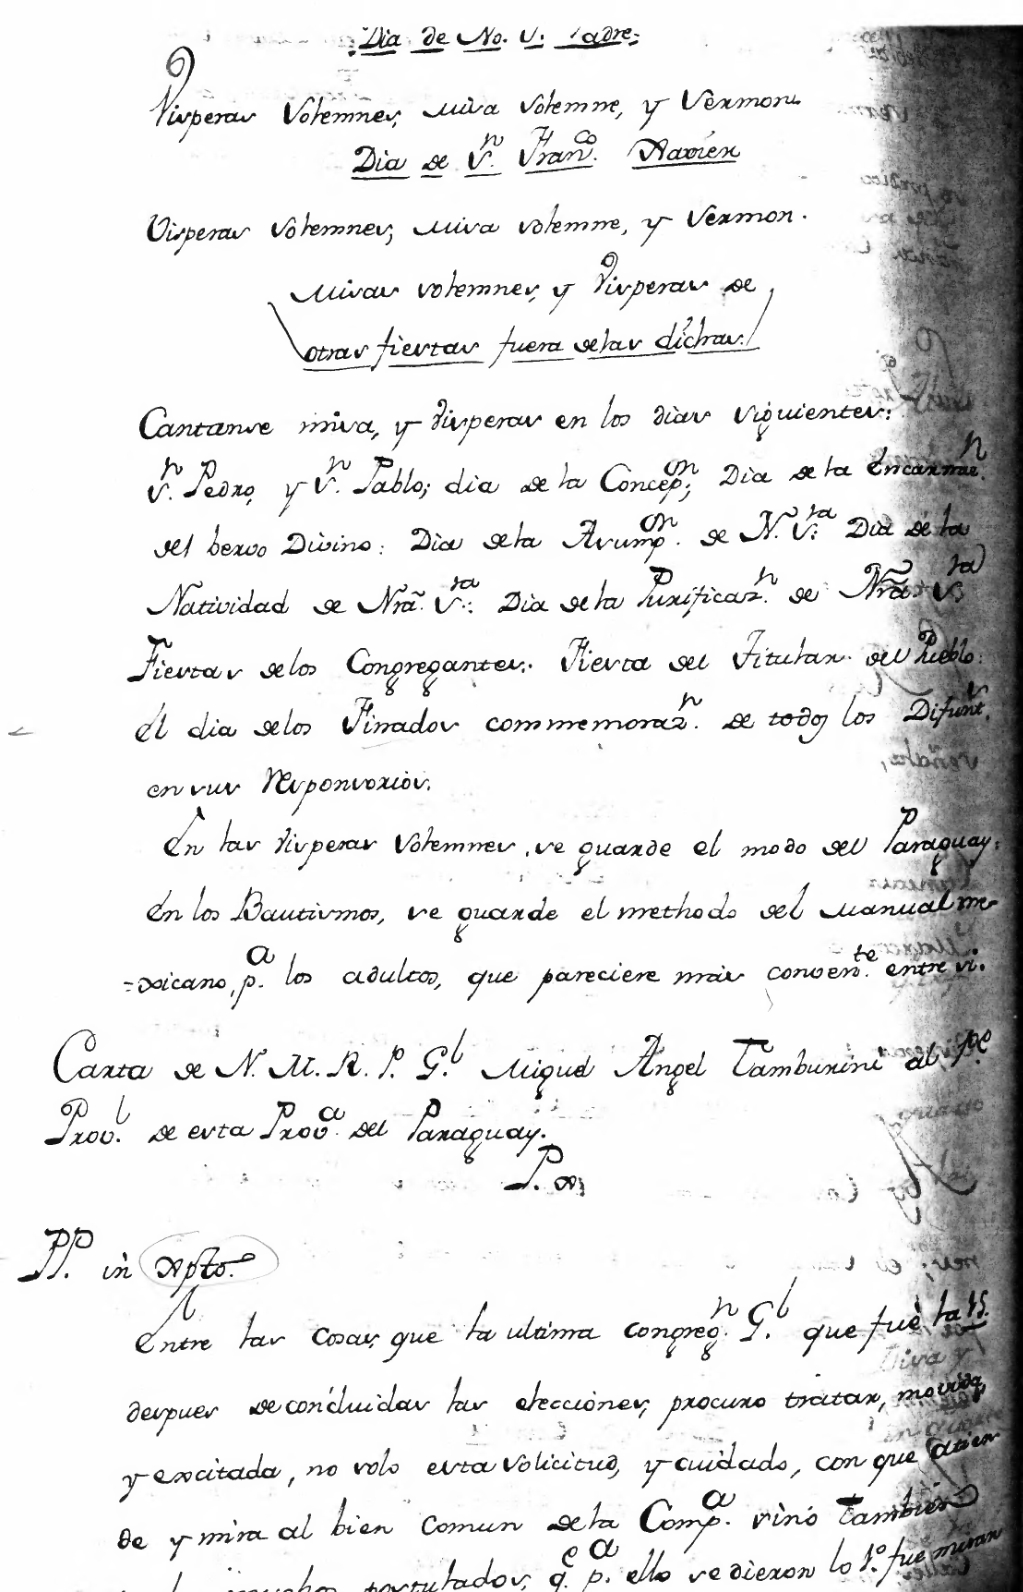 Dia de No. S. Padre.
Visperas Solemnes, Missa Solemne, y Sermon
Dia de Sn. Franco. Xavier
Visperas Solemnes, Missa solemne, y Sermon.
Missas solemnes, y Visperas de
otras fiestas fuera delas dichas.
Cantanse missa, y Visperas en los dias siguientes:
Sn. Pedro, y Sn. Pablo; dia de la Concepon; Dia de la Encarnan.
del berbo Divino: Dia dela Asumpon. de N. Sra: Dia de la
Natividad de Nrã. Sra.: Dia dela Purificazn. de Nrã Sra
Fiestas delos Congregantes. Fiesta del Titular del Pueblo:
El dia delos Finados commemorazn. de todos los Difunts.
en sus Responsorios.
En las Visperas Solemnes, se guarde el modo del Paraguay:
En los Bautismos, se guarde el methodo del Manual me-
=xicano, pa. los adultos, que pareciere mas convente. entre si.
Carta de N. M. R. P. Gl. Miguel Angel Tamburini al Pe.
Provl. de esta Prova. del Paraguay.
P. X.
PP. in Xpto.
Entre las cosas, que la ultima congregn. Gl. que fué la 15.
despues de concluidas las elecciones, procuro tratar, movida,
y excitada, no solo esta Solicitud, y cuidado, con que atien
de y mira al bien comun dela Compa. sino tambien
muchos postulados, qe. pa. ello se dieron lo 1.o fue miran